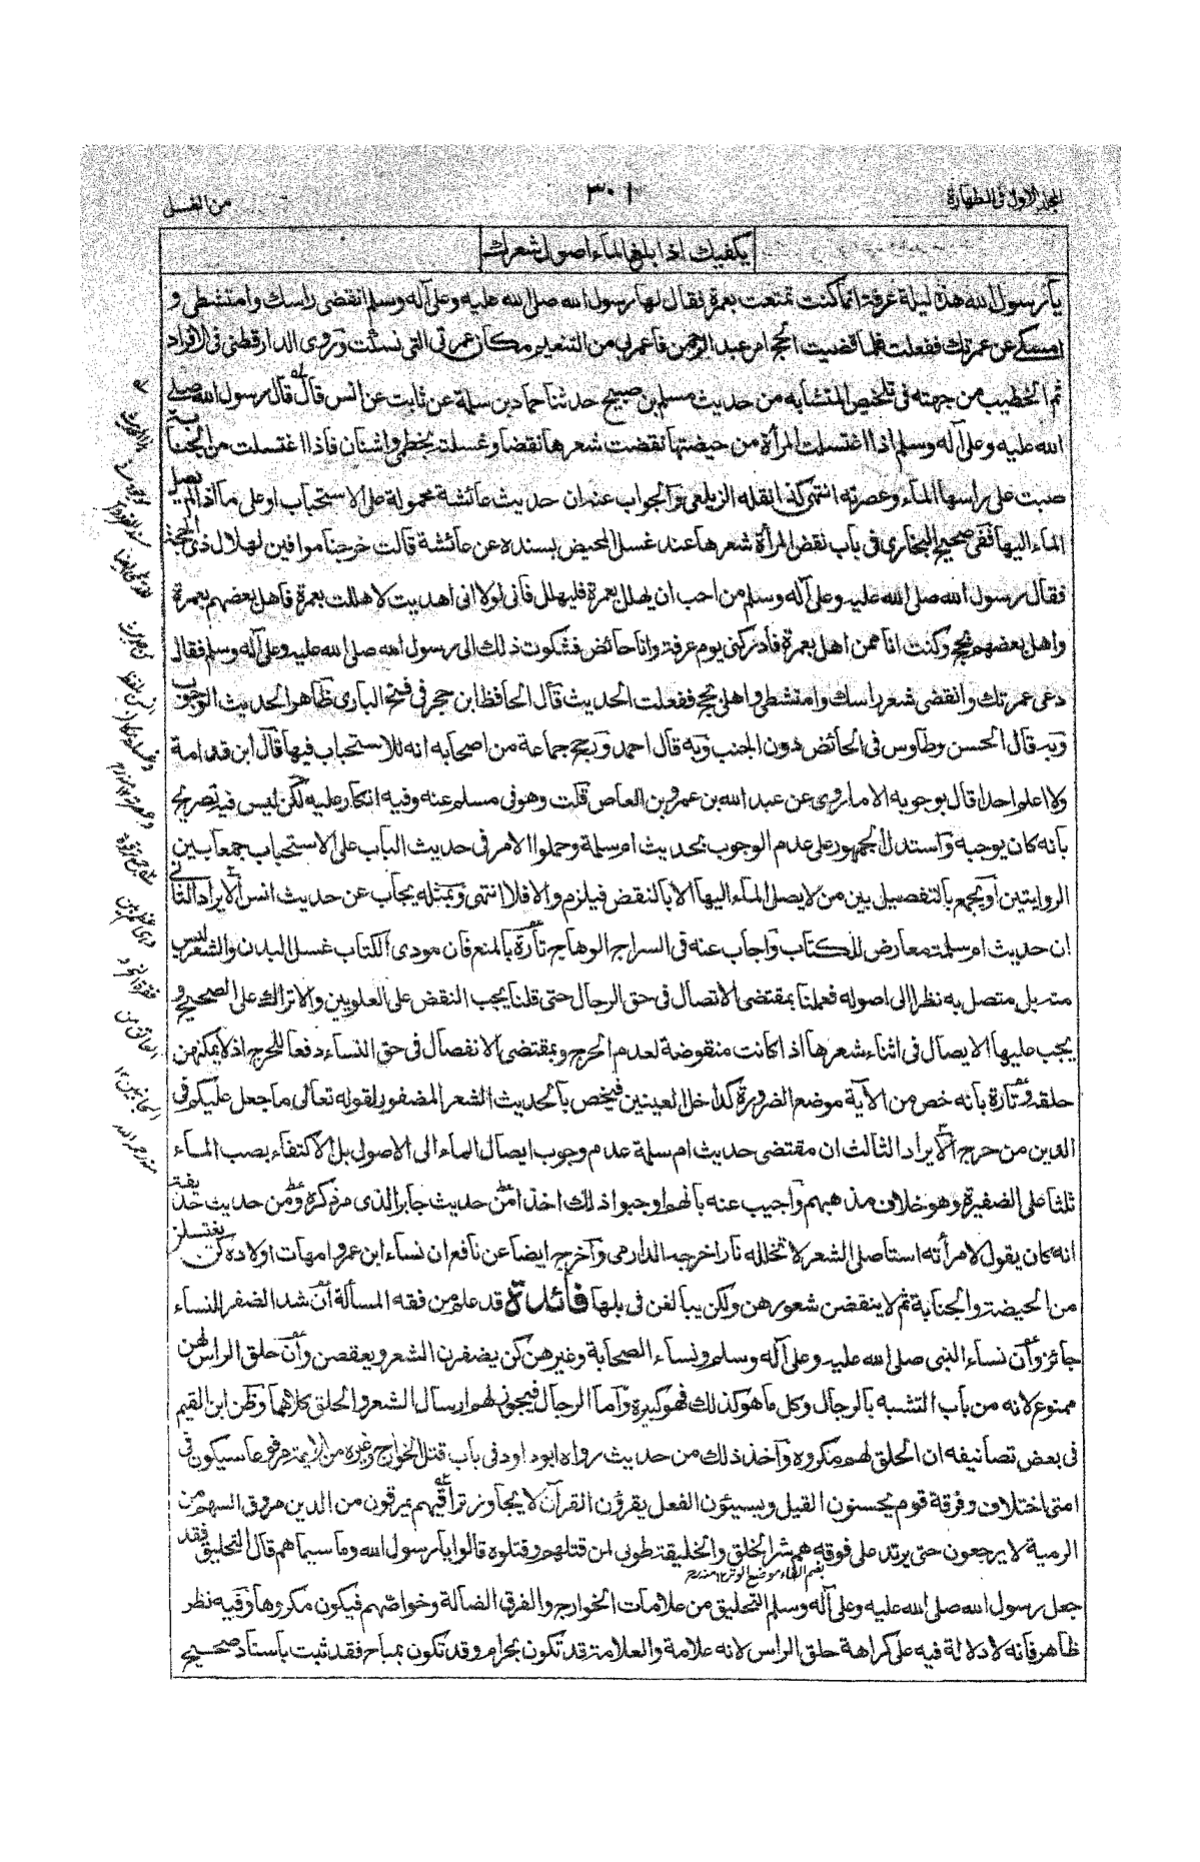 المجلد الاول فى الطهارة
٣٠١
من الغسل
يكفيك اذا بلغ الماء اصول شعرك
يا رسول الله هذه ليلة عرفة انما كنت تمتعت بعمرة فقال لها رسول الله صلى الله عليه وعلى آله وسلم انقضى راسك وامتشطى و
امسكى عن عمرتك ففعلت فلما قضيت الحج امر عبد الرحمن فاعمرنى من التنعيم مكان عمرتى التى نسكت وروى الدارقطنى فى الافراد
ثم الخطيب من جهته فى تلخيص المتشابه من حديث مسلم بن صبيح حدثنا حماد بن سلمة عن ثابت عن انس قال قال رسول الله صلى
الله عليه وعلى آله وسلم اذا اغتسلت المرأة من حيضتها نقضت شعرها نقضا وغسلت بخطمى واشنان فاذا اغتسلت من الجنابة
صبت على راسها الماء وعصرته انتهى كذا نقله الزيلعى والجواب عنه ان حديث عائشة محمولة على الاستحباب او على ما اذا لم يصل
الماء اليها ففى صحيح البخارى فى باب نقض المرأة شعرها عند غسل المحيض بسنده عن عائشة قالت خرجنا موافين لهلال ذى الحجة
فقال رسول الله صلى الله عليه وعلى آله وسلم من احب ان يهلل بعمرة فليهلل فانى لولا انى اهديت لاهللت بعمرة فاهل بعضهم بعمرة
واهل بعضهم بحج وكنت انا ممن اهل بعمرة فأدركنى يوم عرفة وانا حائض فشكوت ذلك الى رسول الله صلى الله عليه وعلى آله وسلم فقال
دعى عمرتك وانقضى شعر راسك وامتشطى واهلى بحج ففعلت الحديث قال الحافظ ابن حجر فى فتح البارى ظاهر الحديث الوجوب
وبه قال الحسن وطاوس فى الحائض دون الجنب وبه قال احمد ورجح جماعة من اصحابه انه للاستحباب فيها قال ابن قدامة
ولا اعلم احدا قال بوجوبه الا ما روى عن عبد الله بن عمرو بن العاص قلت وهو فى مسلم عنه وفيه انكار عليه لكن ليس فيه تصريح
بأنه كان يوجبه واستدل الجمهور على عدم الوجوب بحديث ام سلمة وحملوا الامر فى حديث الباب على الاستحباب جمعا بين
الروايتين او يجمع بالتفصيل بين من لا يصل الماء اليها الا بالنقض فيلزم والا فلا انتهى وبمثله يجاب عن حديث انس الايراد الثانى
ان حديث ام سلمة معارض للكتاب واجاب عنه فى السراج الوهاج تارة بالمنع فان مودى الكتاب غسل البدن والشعر ليس
منه بل متصل به نظرا الى اصوله فعملنا بمقتضى الاتصال فى حق الرجال حتى قلنا يجب النقض على العلويين والاتراك على الصحيح و
يجب عليها الايصال فى اثناء شعرها اذا كانت منقوضة لعدم الحرج وبمقتضى الانفصال فى حق النساء دفعا للحرج اذ لا يمكنهن
حلقه وتارة بأنه خص من الآية موضع الضرورة كداخل العينين فيخص بالحديث الشعر المضفور لقوله تعالى ما جعل عليكم فى
الدين من حرج الايراد الثالث ان مقتضى حديث ام سلمة عدم وجوب ايصال الماء الى الاصول بل الاكتفاء بصب الماء
ثلثا على الضفيرة وهو خلاف مذهبهم واجيب عنه بانهم اوجبوا ذلك اخذا من حديث جابر الذى مر ذكره ومن حديث حذيفة
انه كان يقول لامرأته استأصلى الشعر لا تخلله نار اخرجه الدارمى واخرج ايضا عن نافع ان نساء ابن عمر وامهات اولاده كن يغتسلن
من الحيضة والجنابة ثم لا ينقضن شعورهن ولكن يبالغن فى بلها فائدة قد علم من فقه المسألة ان شد الضفر للنساء
جائز وأن نساء النبى صلى الله عليه وعلى آله وسلم ونساء الصحابة وغيرهن كن يضفرن الشعر ويعقصن وأن حلق الراس لهن
ممنوع لانه من باب التشبه بالرجال وكل ما هو كذلك فهو كبيرة واما الرجال فيجوز لهم ارسال الشعر والحلق كلاهما وظن ابن القيم
فى بعض تصانيفه ان الحلق لهم مكروه واخذ ذلك من حديث رواه ابو داود فى باب قتل الخوارج وغيره من الايمة مرفوعا سيكون فى
امتى اختلاف وفرقة قوم يحسنون القيل ويسيئون الفعل يقرؤن القرآن لا يجاوز تراقيهم يمرقون من الدين مروق السهم من
الرمية لا يرجعون حتى يرتد على فوقه هم شر الخلق والخليقة طوبى لمن قتلهم وقتلوه قالوا يا رسول الله وما سيماهم قال التحليق فقد
بضم الفاء موضع الوتر ١٢ منه رح
جعل رسول الله صلى الله عليه وعلى آله وسلم التحليق من علامات الخوارج والفرق الضالة وخواصهم فيكون مكروها وفيه نظر
ظاهر فانه لا دلالة فيه على كراهة حلق الراس لانه علامة والعلامة قد تكون بحرام وقد تكون بمباح فقد ثبت باسناد صحيح